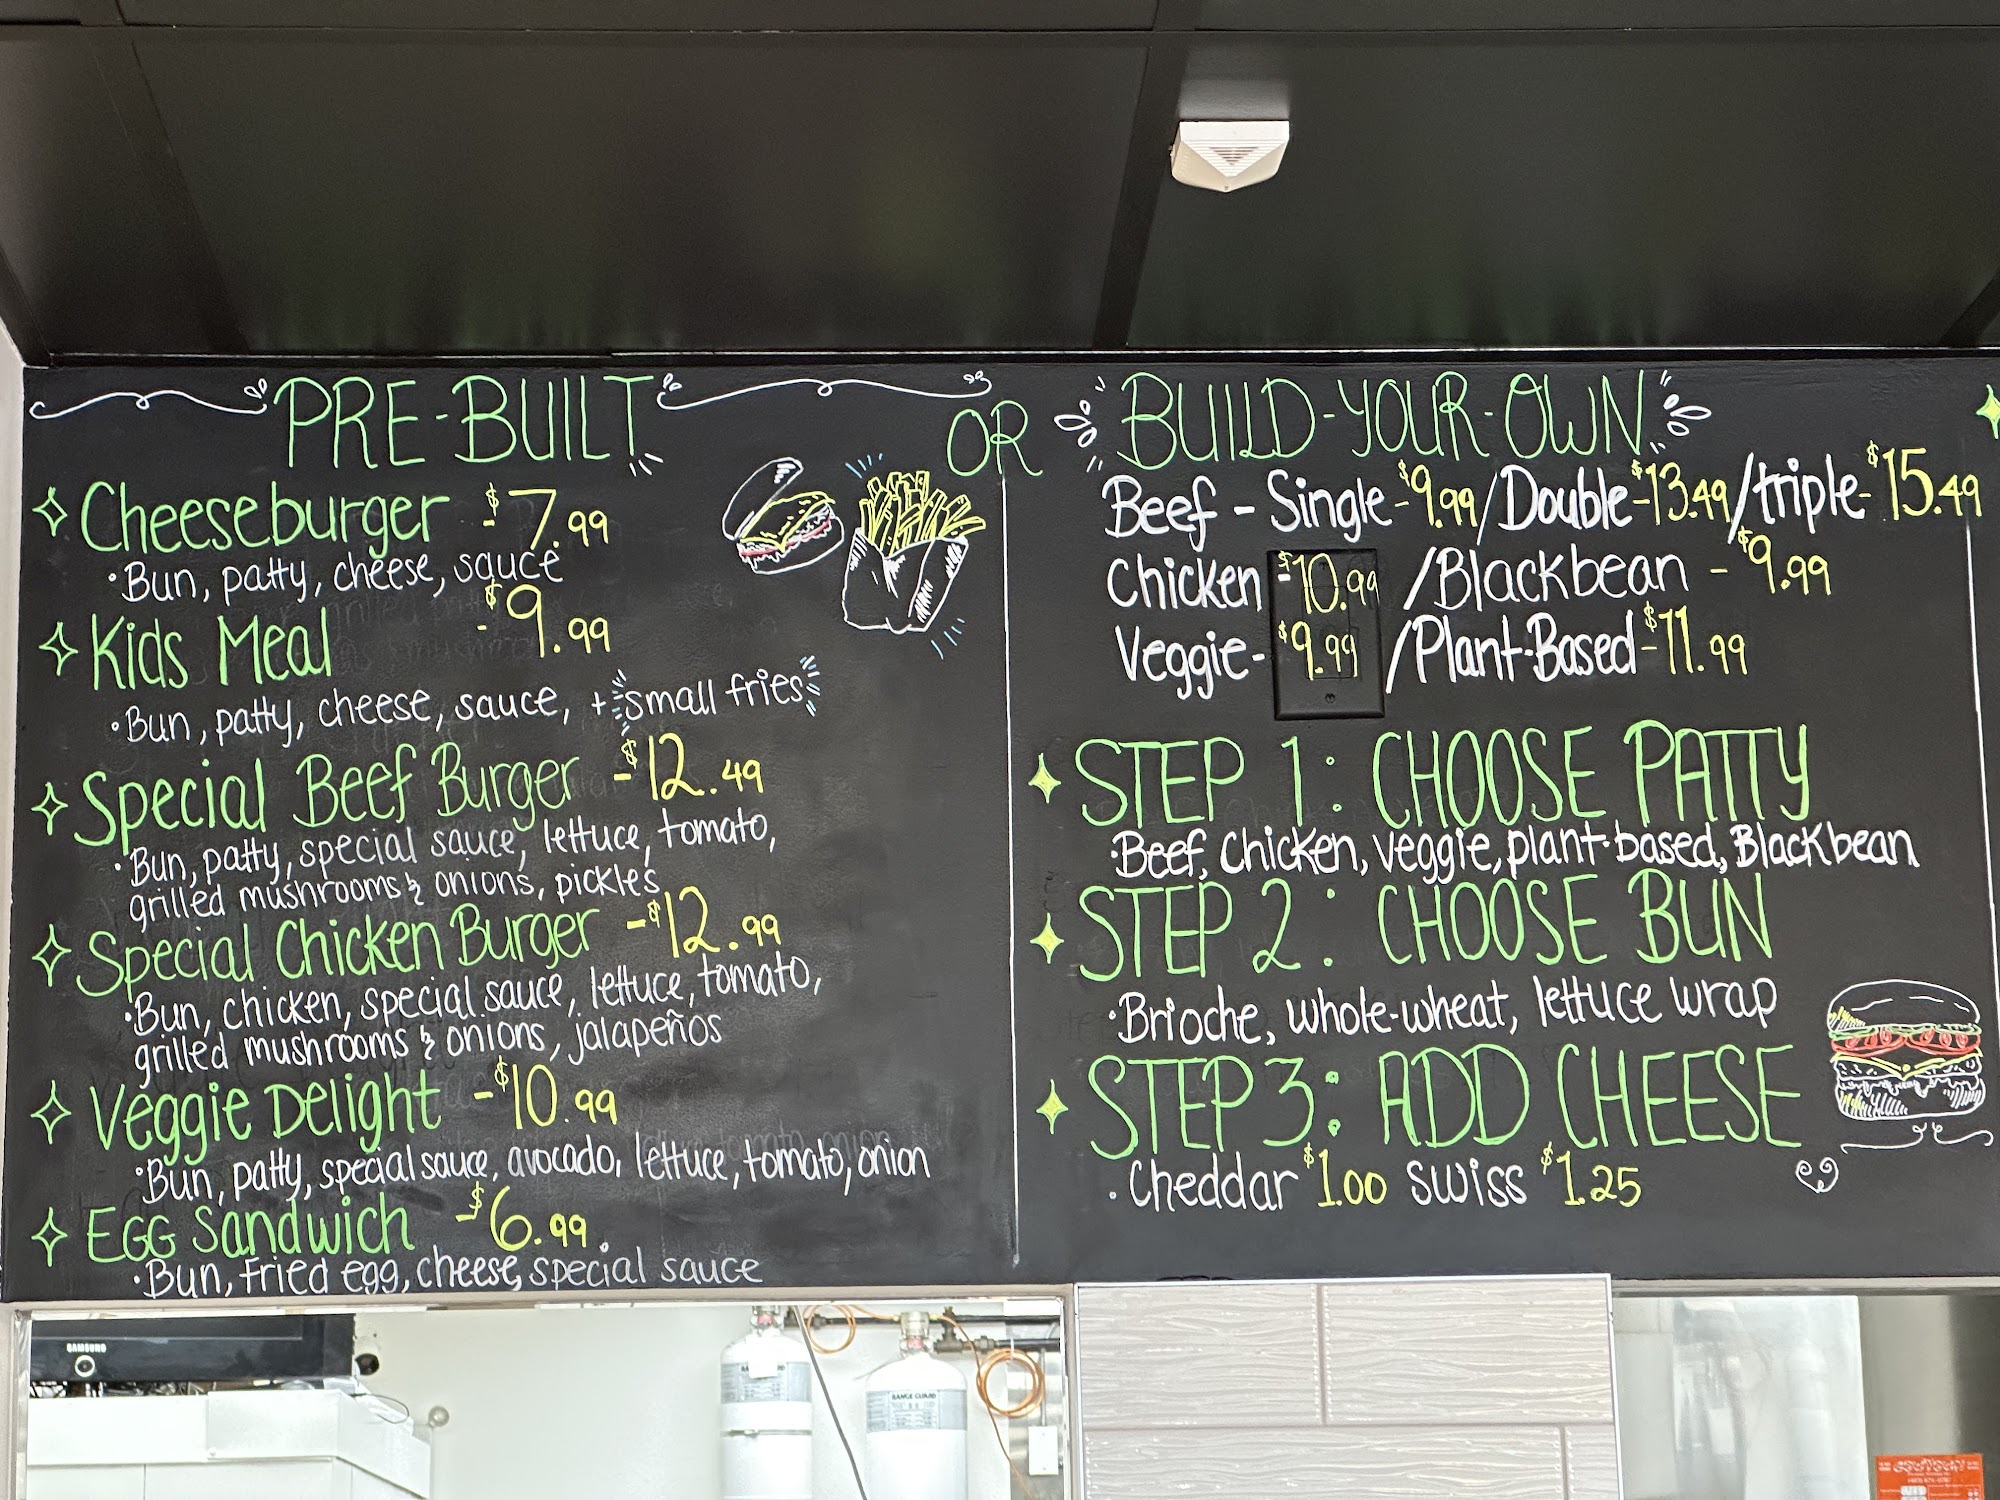 PRE-BUILT
Cheeseburger - $7.99
• Bun, patty, cheese, sauce
Kids Meal - $9.99
• Bun, patty, cheese, sauce, + small fries
Special Beef Burger - $12.49
• Bun, patty, special sauce, lettuce, tomato,
grilled mushrooms & onions, pickles
Special Chicken Burger - $12.99
• Bun, chicken, special sauce, lettuce, tomato,
grilled mushrooms & onions, jalapeños
Veggie Delight - $10.99
• Bun, patty, special sauce, avocado, lettuce, tomato, onion
EGG Sandwich - $6.99
• Bun, Fried egg, cheese, special sauce
OR
BUILD-YOUR-OWN
Beef - Single - $9.99 / Double - $13.49 / triple - $15.49
Chicken - $10.99 / Blackbean - $9.99
Veggie - $9.99 / Plant-Based - $11.99
STEP 1: CHOOSE PATTY
• Beef, Chicken, veggie, plant-based, Blackbean
STEP 2: CHOOSE BUN
• Brioche, whole-wheat, lettuce wrap
STEP 3: ADD CHEESE
• Cheddar $1.00 swiss $1.25
SAMSUNG
RANGE GUARD